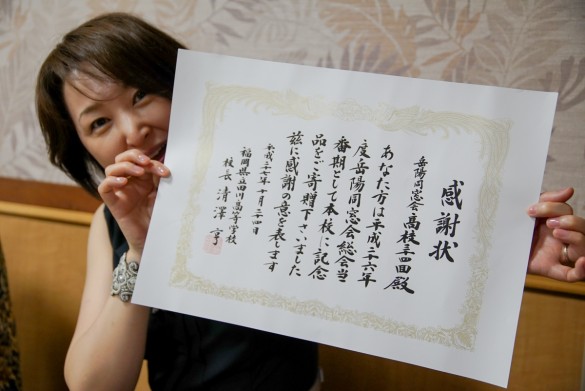 感謝状
岳陽同窓会高校三四回殿
あなた方は平成二六年
度岳陽同窓会総会当
番期として本校に記念
品をご寄贈下さいました
茲に感謝の意を表します
平成二七年一月二四日
福岡県立田川高等学校
校長 清澤 亨